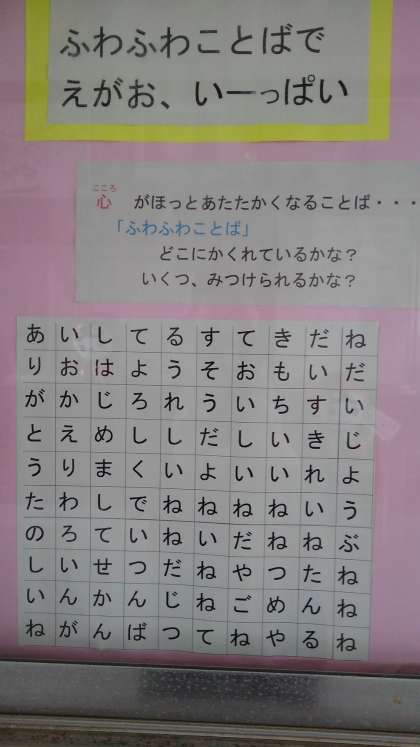 ふわふわことばで
えがお、いーっぱい
こころ
心 がほっとあたたかくなることば・・・
「ふわふわことば」
どこにかくれているかな？
いくつ、みつけられるかな？
あいしてるすてきだね
りおはようそおもいだ
がかじろれういちすい
とえめししだしいきじ
うりまくいよいいれよ
たわしでねねねねいう
のろていねいだねねぶ
しいせつだねやつたね
いんかんじねごめんね
ねがんばってねやるね